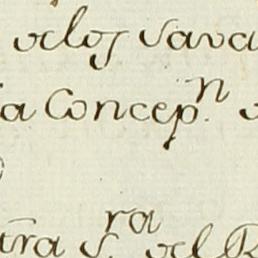 de los Sava
ia Concep.n d
tra S.ra del R